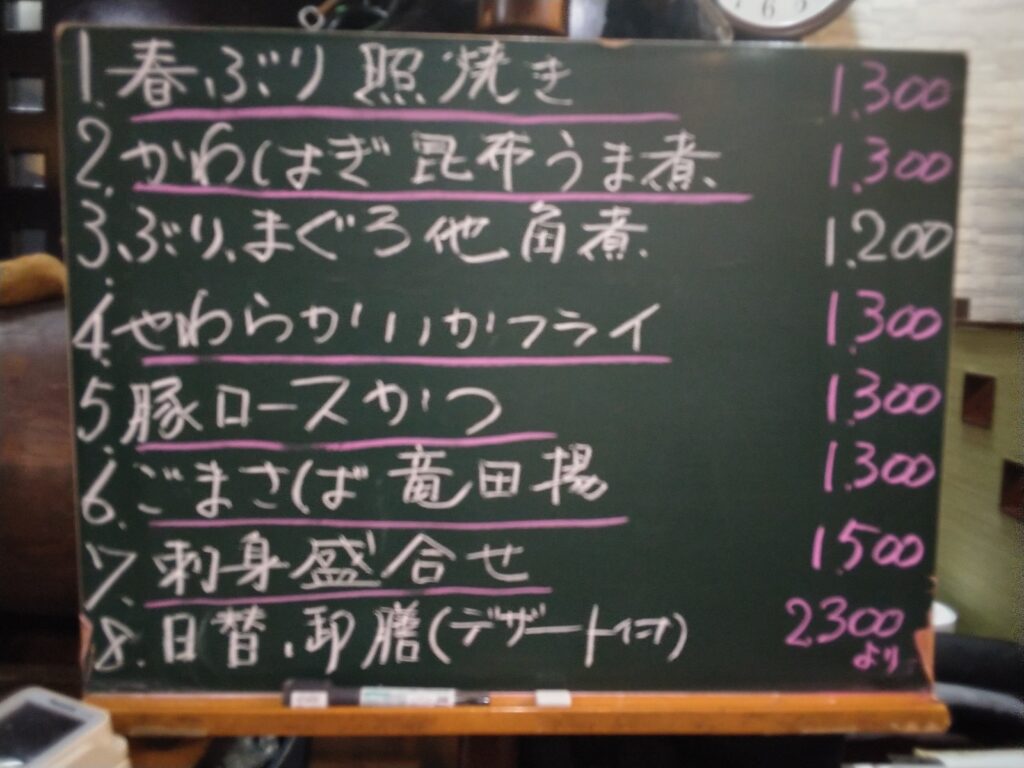 1. 春ぶり 照焼き 1.300
2. かわはぎ 昆布うま煮 1.300
3. ぶり、まぐろ他 角煮 1.200
4. やわらかいいかフライ 1.300
5. 豚ロースかつ 1.300
6. ごまさば 竜田揚 1.300
7. 刺身盛合せ 1.500
8. 日替、御膳(デザート付) 2.300
より